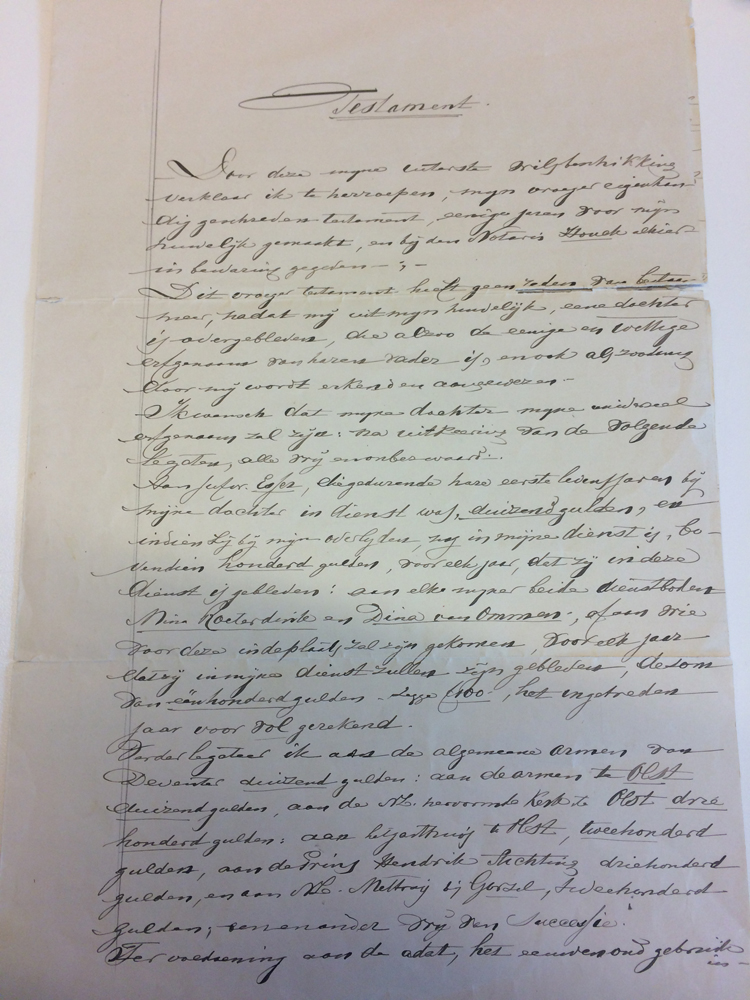 Testament.
Door deze mijne uiterste wilsbeschikking
verklaar ik te herroepen, mijn vroeger eigenhan-
dig geschreven testament, eenige jaren voor mijn
huwelijk gemaakt, en bij den Notaris Houck alhier
in bewaring gegeven —;—
Dit vroeger testament heeft geen reden van bestaan
meer, nadat mij uit mijn huwelijk, eene dochter
is overgebleven, die alzoo de eenige en wettige
erfgenaam van haren vader is, en ook als zoodanig
door mij wordt erkend en aangewezen.-
Ik wensch dat mijne dochter mijne universeel
erfgenaam zal zijn: na uitkeering van de volgende
legaten, alle vrij en onbezwaard.
Aan Jufvr. Esser, die gedurende hare eerste levensjaren bij
mijne dochter in dienst was, duizend gulden, en
indien zij bij mijn overlijden, nog in mijne dienst is, bo-
vendien honderd gulden, voor elk jaar, dat zij in deze
dienst is gebleven: aan elke mijner beide dienstboden
Mina Roeterdink en Dina van Ommen, of aan wie
voor deze in de plaats zal zijn gekomen, voor elk jaar
dat zij in mijne dienst zullen zijn gebleven, de som
van eenhonderd gulden - zegge f100.-, het ingetreden
jaar voor vol gerekend.
Verder legateer ik aan de algemeene armen van
Deventer duizend gulden: aan de armen te Olst
duizend gulden, aan de N.H. hervormde Kerk te Olst drie
honderd gulden: aan te Olst, tweehonderd
gulden, aan de Prins Hendrik Stichting driehonderd
gulden, en aan N.L. Mettray bij Gorsel, tweehonderd
gulden; een en ander vrij van Successie.
Ter voldoening aan de adat, het eeuwenoud gebruik
in-